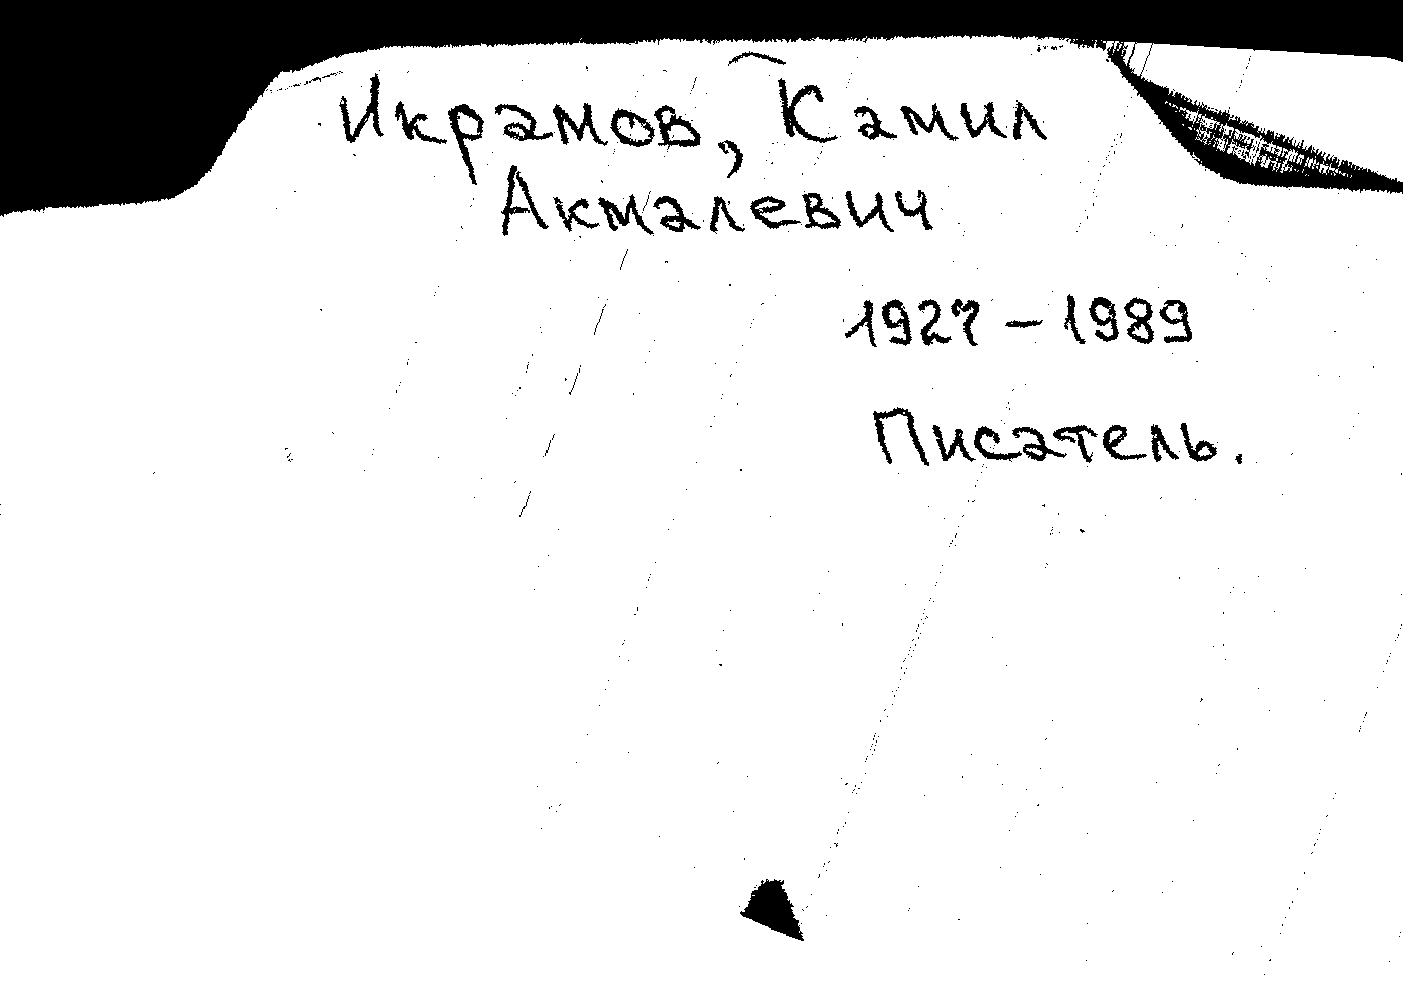 Икрамов, Камил
Акмалевич
1927 – 1989
Писатель.